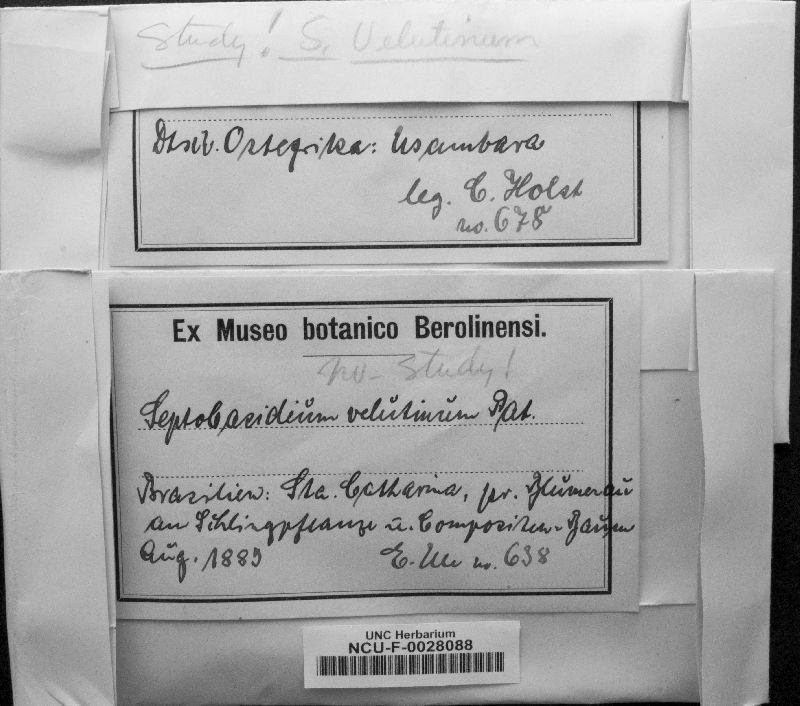 Study! S. Velutinum
Dtsch. Ostafrika: Usambara
leg. C. Holst
no. 678
Ex Museo botanico Berolinensi.
no - Study!
Septobasidium velutinum Pat.
Brasilien: Sta. Catharina, pr. Blumenau
an Schlingpflanze u. Compositen-
Aug. 1889 E. Ule no. 638
UNC Herbarium
NCU-F-0028088